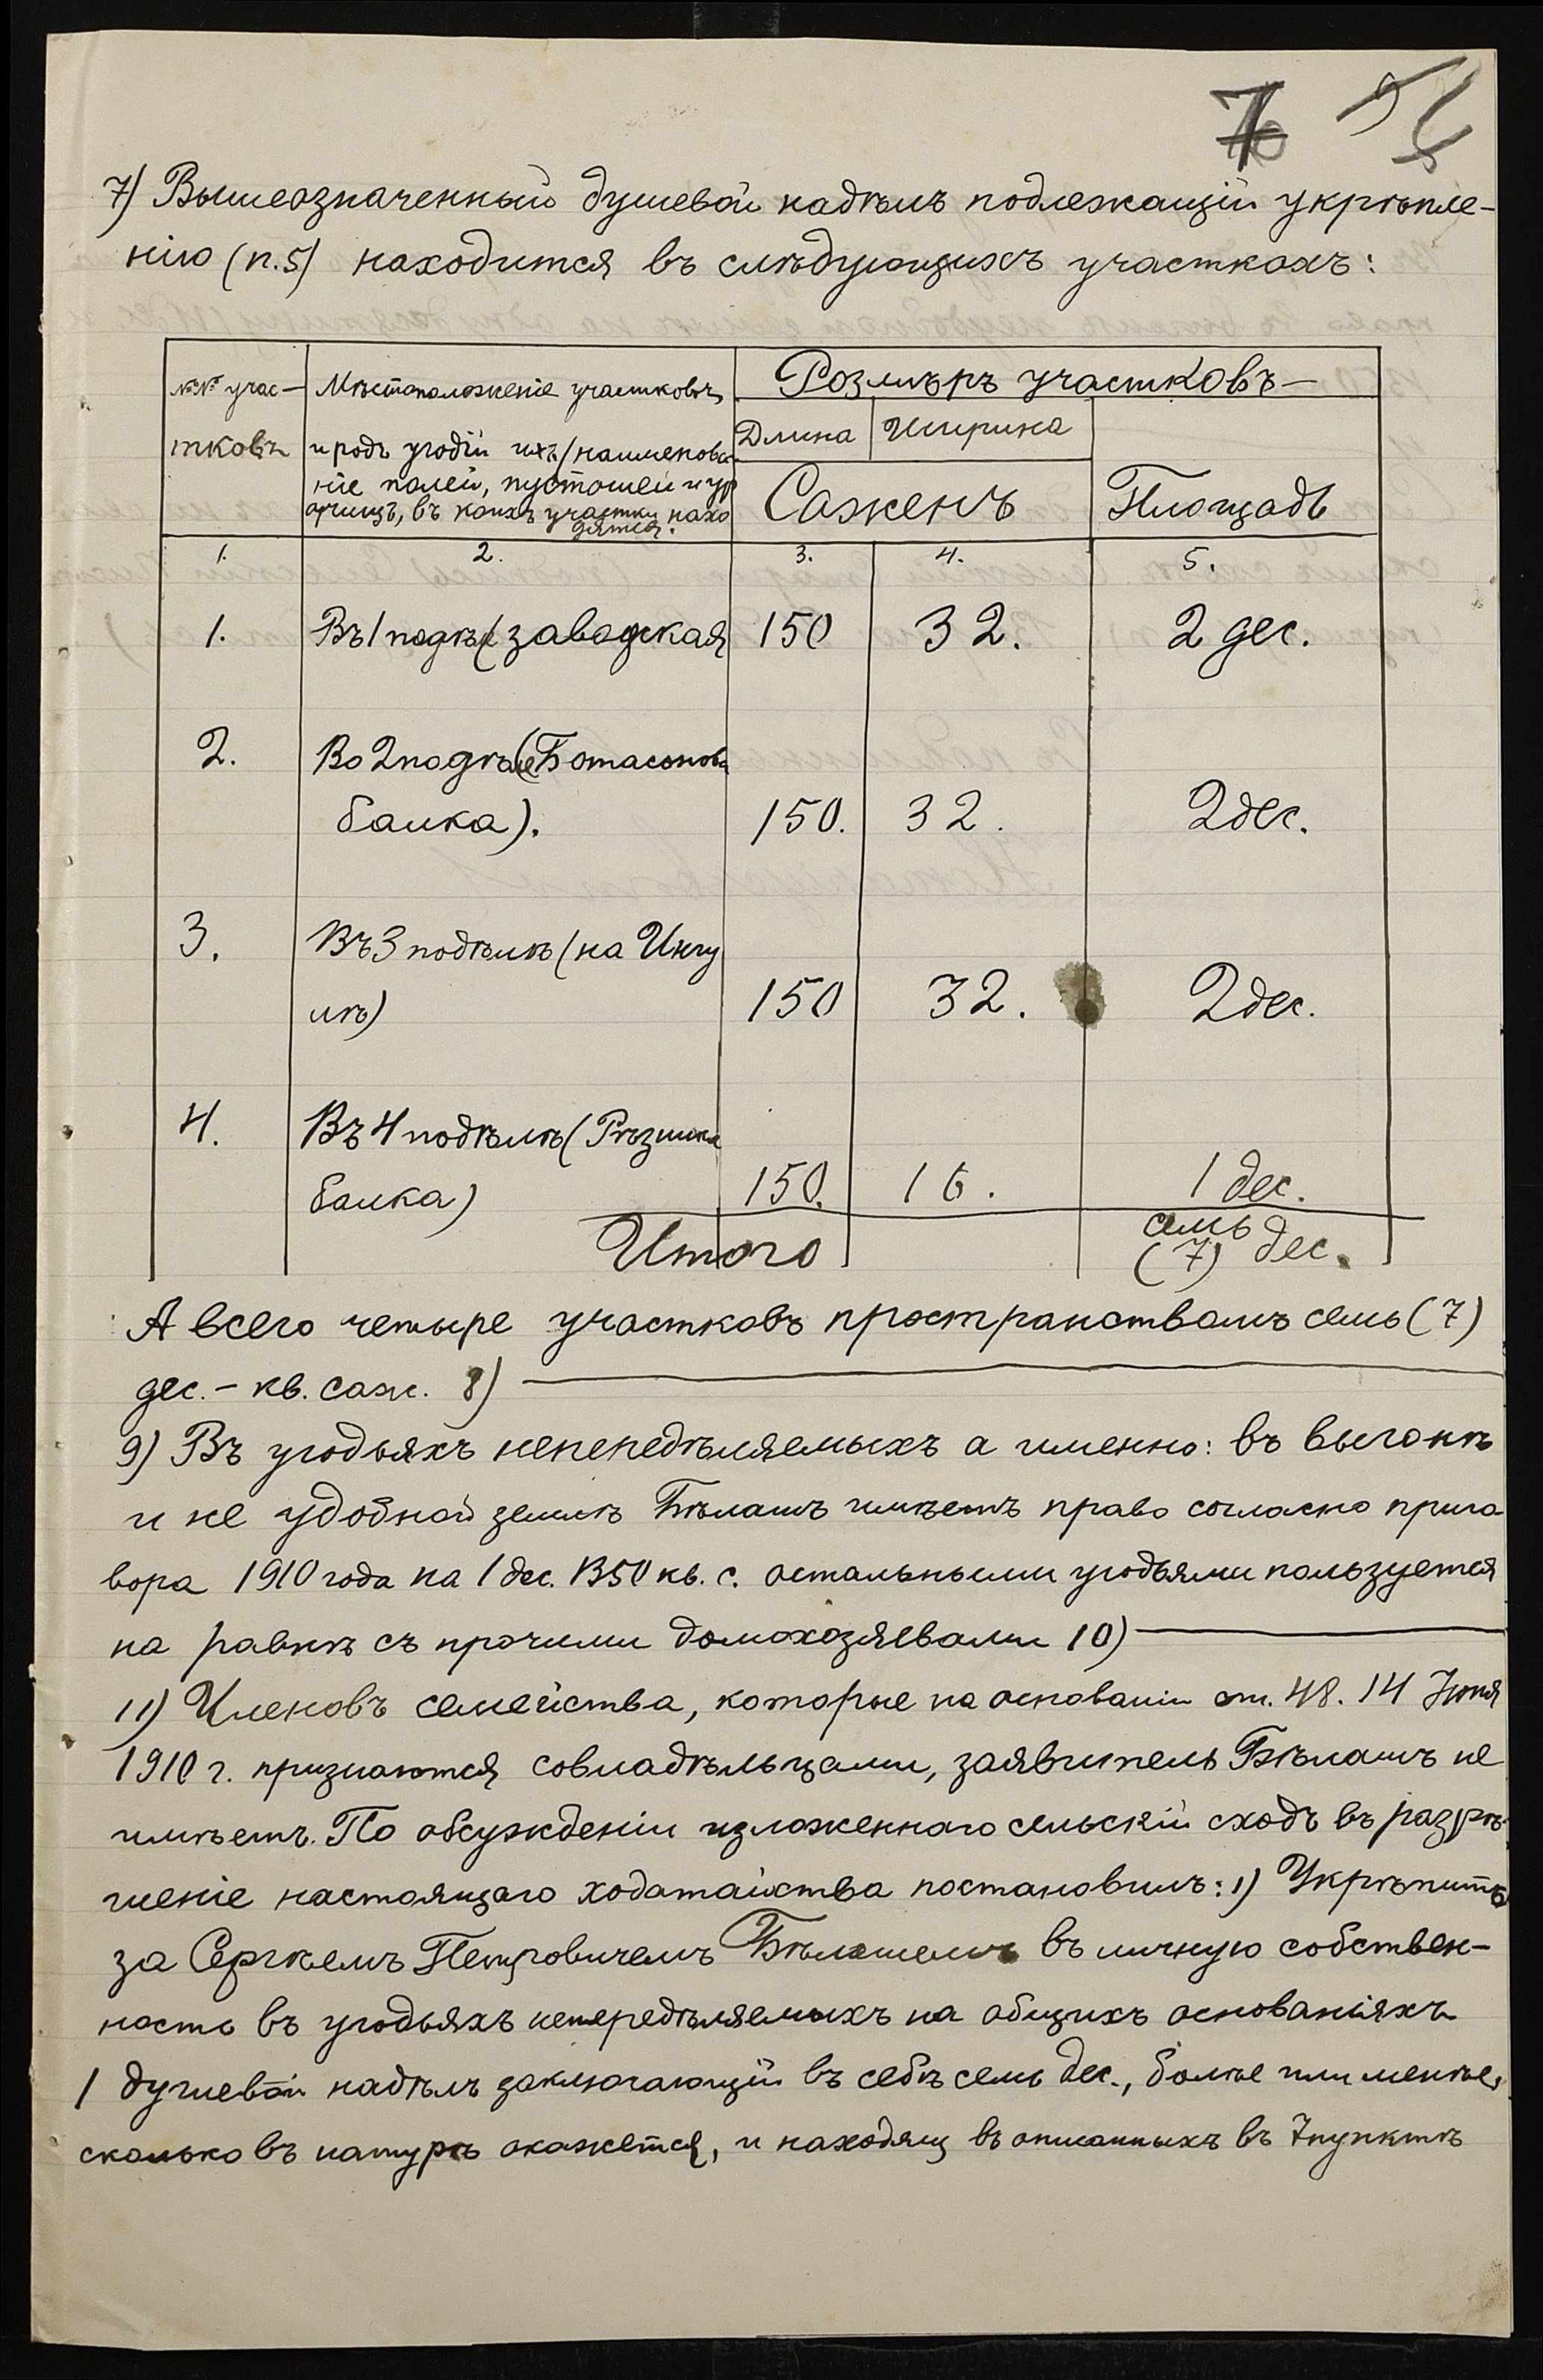 7) Вышеозначенный душевой надѣлъ подлежащій укрѣпле-
нію (п.5) находится въ слѣдующихъ участкахъ:
№№ учас-
тковъ
Мѣстоположеніе участковъ,
и родъ угодій ихъ (наименова-
ніе полей, пустошей и ур
очищъ, въ коихъ участки нахо
дятся.
Розмѣръ участковъ-
Длина Ширина
Сажень Площадь
1. 2. 3. 4. 5.
1. Въ 1 подѣ (заводская 150 32. 2 дес.
2. Во 2 подѣле (
балка). 150. 32. 2 дес.
3. Въ 3 подѣлѣ (на Ингу
лѣ) 150 32. 2 дес.
4. Въ 4 подѣлѣ (
балка) 150. 16. 1 дес.
Итого семь (7) дес.
А всего четыре участковъ пространствомъ семь (7)
дес. - кв. саж. 8)
9) Въ угодьяхъ непередѣляемыхъ а именно: въ выгонѣ
и не удобной землѣ Бѣлашъ имѣетъ право согласно приго-
вора 1910 года на 1 дес. 1350 кв. с. остальными угодьями пользуется
на равнѣ съ прочими домохозяевами 10)
11) Членовъ семейства, которые на основаніи ст. 48. 14 Іюня
1910 г. признаются совладѣльцами, заявитель Бѣлашъ не
имѣетъ. По обсужденіи изложеннаго сельскій сходъ въ разрѣ-
шеніе настоящаго ходатайства постановилъ: 1) Укрѣпить
за Сергѣемъ Петровичемъ Бѣлашемъ въ личную собствен-
ность въ угодьяхъ непередѣляемыхъ на общихъ основаніяхъ
1 душевой надѣлъ заключающій въ себѣ семь дес., болѣе или менѣе,
сколько въ натурѣ окажется, и находящ въ описанныхъ въ 7 пунктѣ